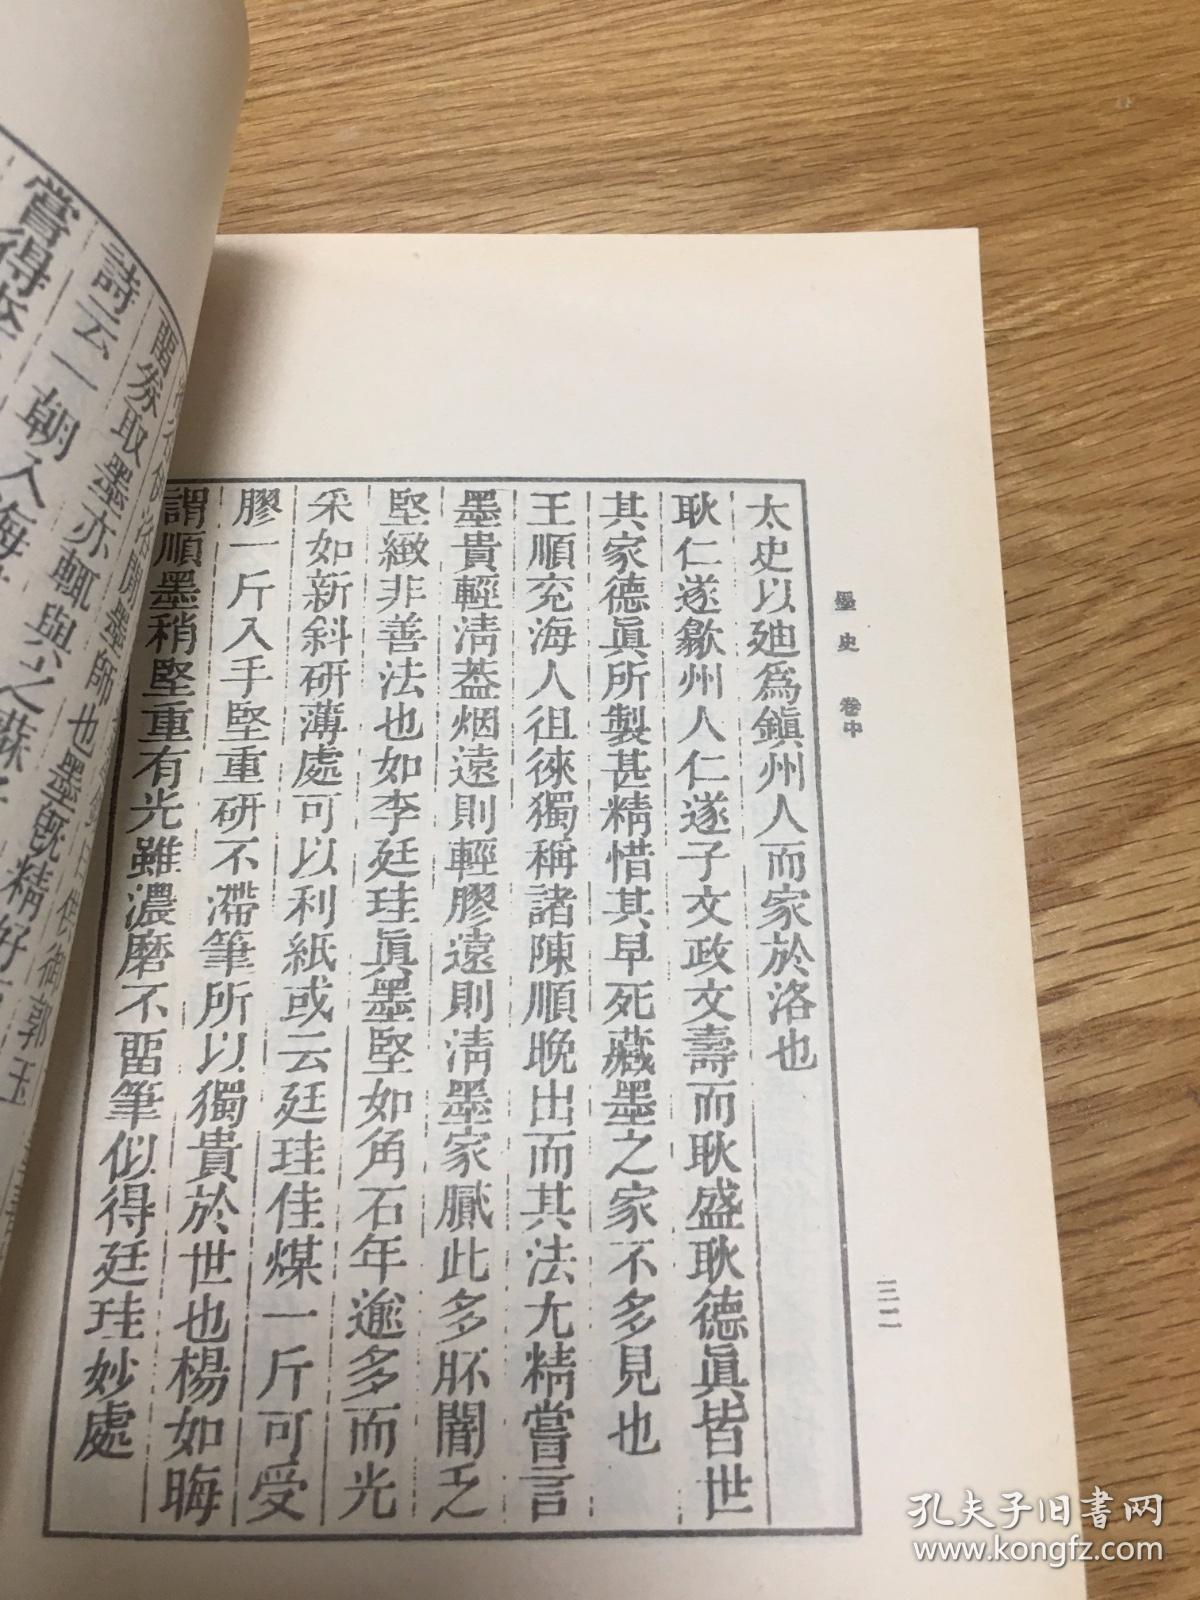 墨史 卷中
三二
太史以廸爲鎭州人而家於洛也
耿仁遂歙州人仁遂子文政文壽而耿盛耿德眞皆世
其家德眞所製甚精惜其早死藏墨之家不多見也
王順兖海人徂徠獨稱諸陳順晚出而其法尤精嘗言
墨貴輕淸葢烟遠則輕膠遠則淸墨家膩此多胚闇乏
堅緻非善法也如李廷珪眞墨堅如角石年逾多而光
采如新斜研薄處可以利紙或云廷珪佳煤一斤可受
膠一斤入手堅重研不滯筆所以獨貴於世也楊如晦
謂順墨稍堅重有光雖濃磨不畱筆似得廷珪妙處
御郭玉
洛陽墨師也墨旣精好
畱劵取墨亦輒與之蘇
詩云一朝入海
嘗得
孔夫子旧书网
www.kongfz.com